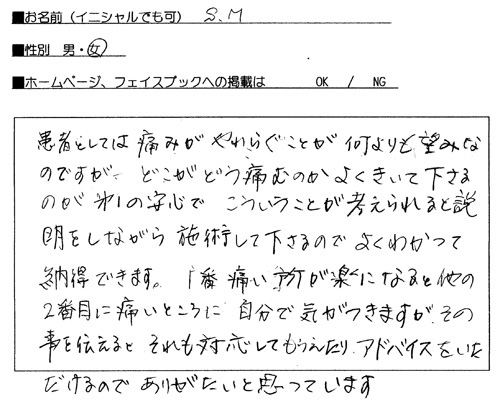 ■お名前（イニシャルでも可） S.M
■性別 男・女
■ホームページ、フェイスブックへの掲載は OK / NG
患者としては痛みがやわらぐことが何よりも望みな
のですが、どこがどう痛むのかよくきいて下さる
のが第1の安心で こういうことが考えられると説
明をしながら施術して下さるのでよくわかって
納得できます。1番痛い所が楽になると他の
2番目に痛いところに自分で気がつきますが、その
事を伝えるとそれも対応してもらえたり、アドバイスをいた
だけるのでありがたいと思っています